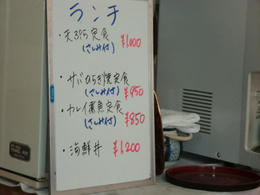 ランチ
・天ぷら定食
(さしみ付) ¥1,000
・サバひらき焼定食
(さしみ付) ¥950
・カレイ煮魚定食
(さしみ付) ¥850
・海鮮丼 ¥1,200